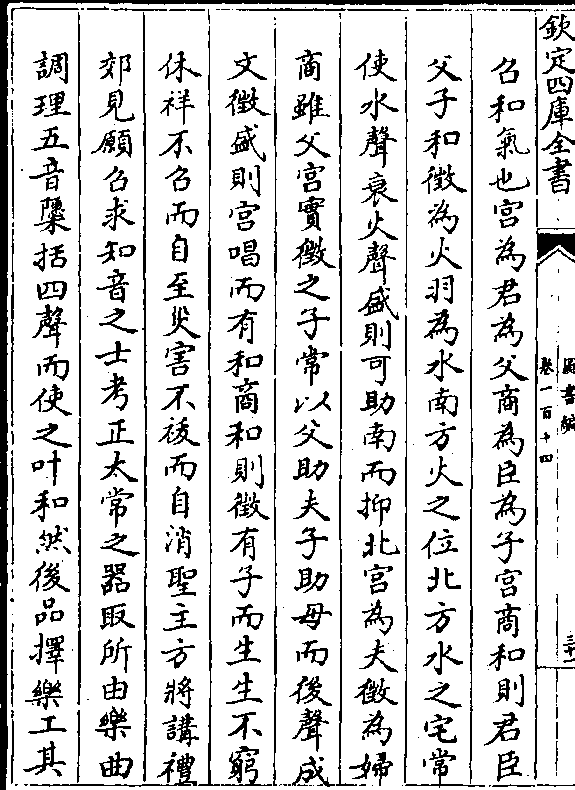 欽定四庫全書
圖書編
卷一百十四
三十一
召和氣也宫為君為父商為臣為子宫商和則君臣
父子和徵為火羽為水南方火之位北方水之宅常
使水聲衰火聲盛則可助南而抑北宫為夫徵為婦
商雖父宫實徵之子常以父助夫子助母而後聲成
文徵盛則宫唱而有和商和則徵有子而生生不窮
休祥不召而自至災害不祓而自消聖主方將講禮
郊見願召求知音之士考正太常之器取所由樂曲
調理五音檃括四聲而使之叶和然後品擇樂工其